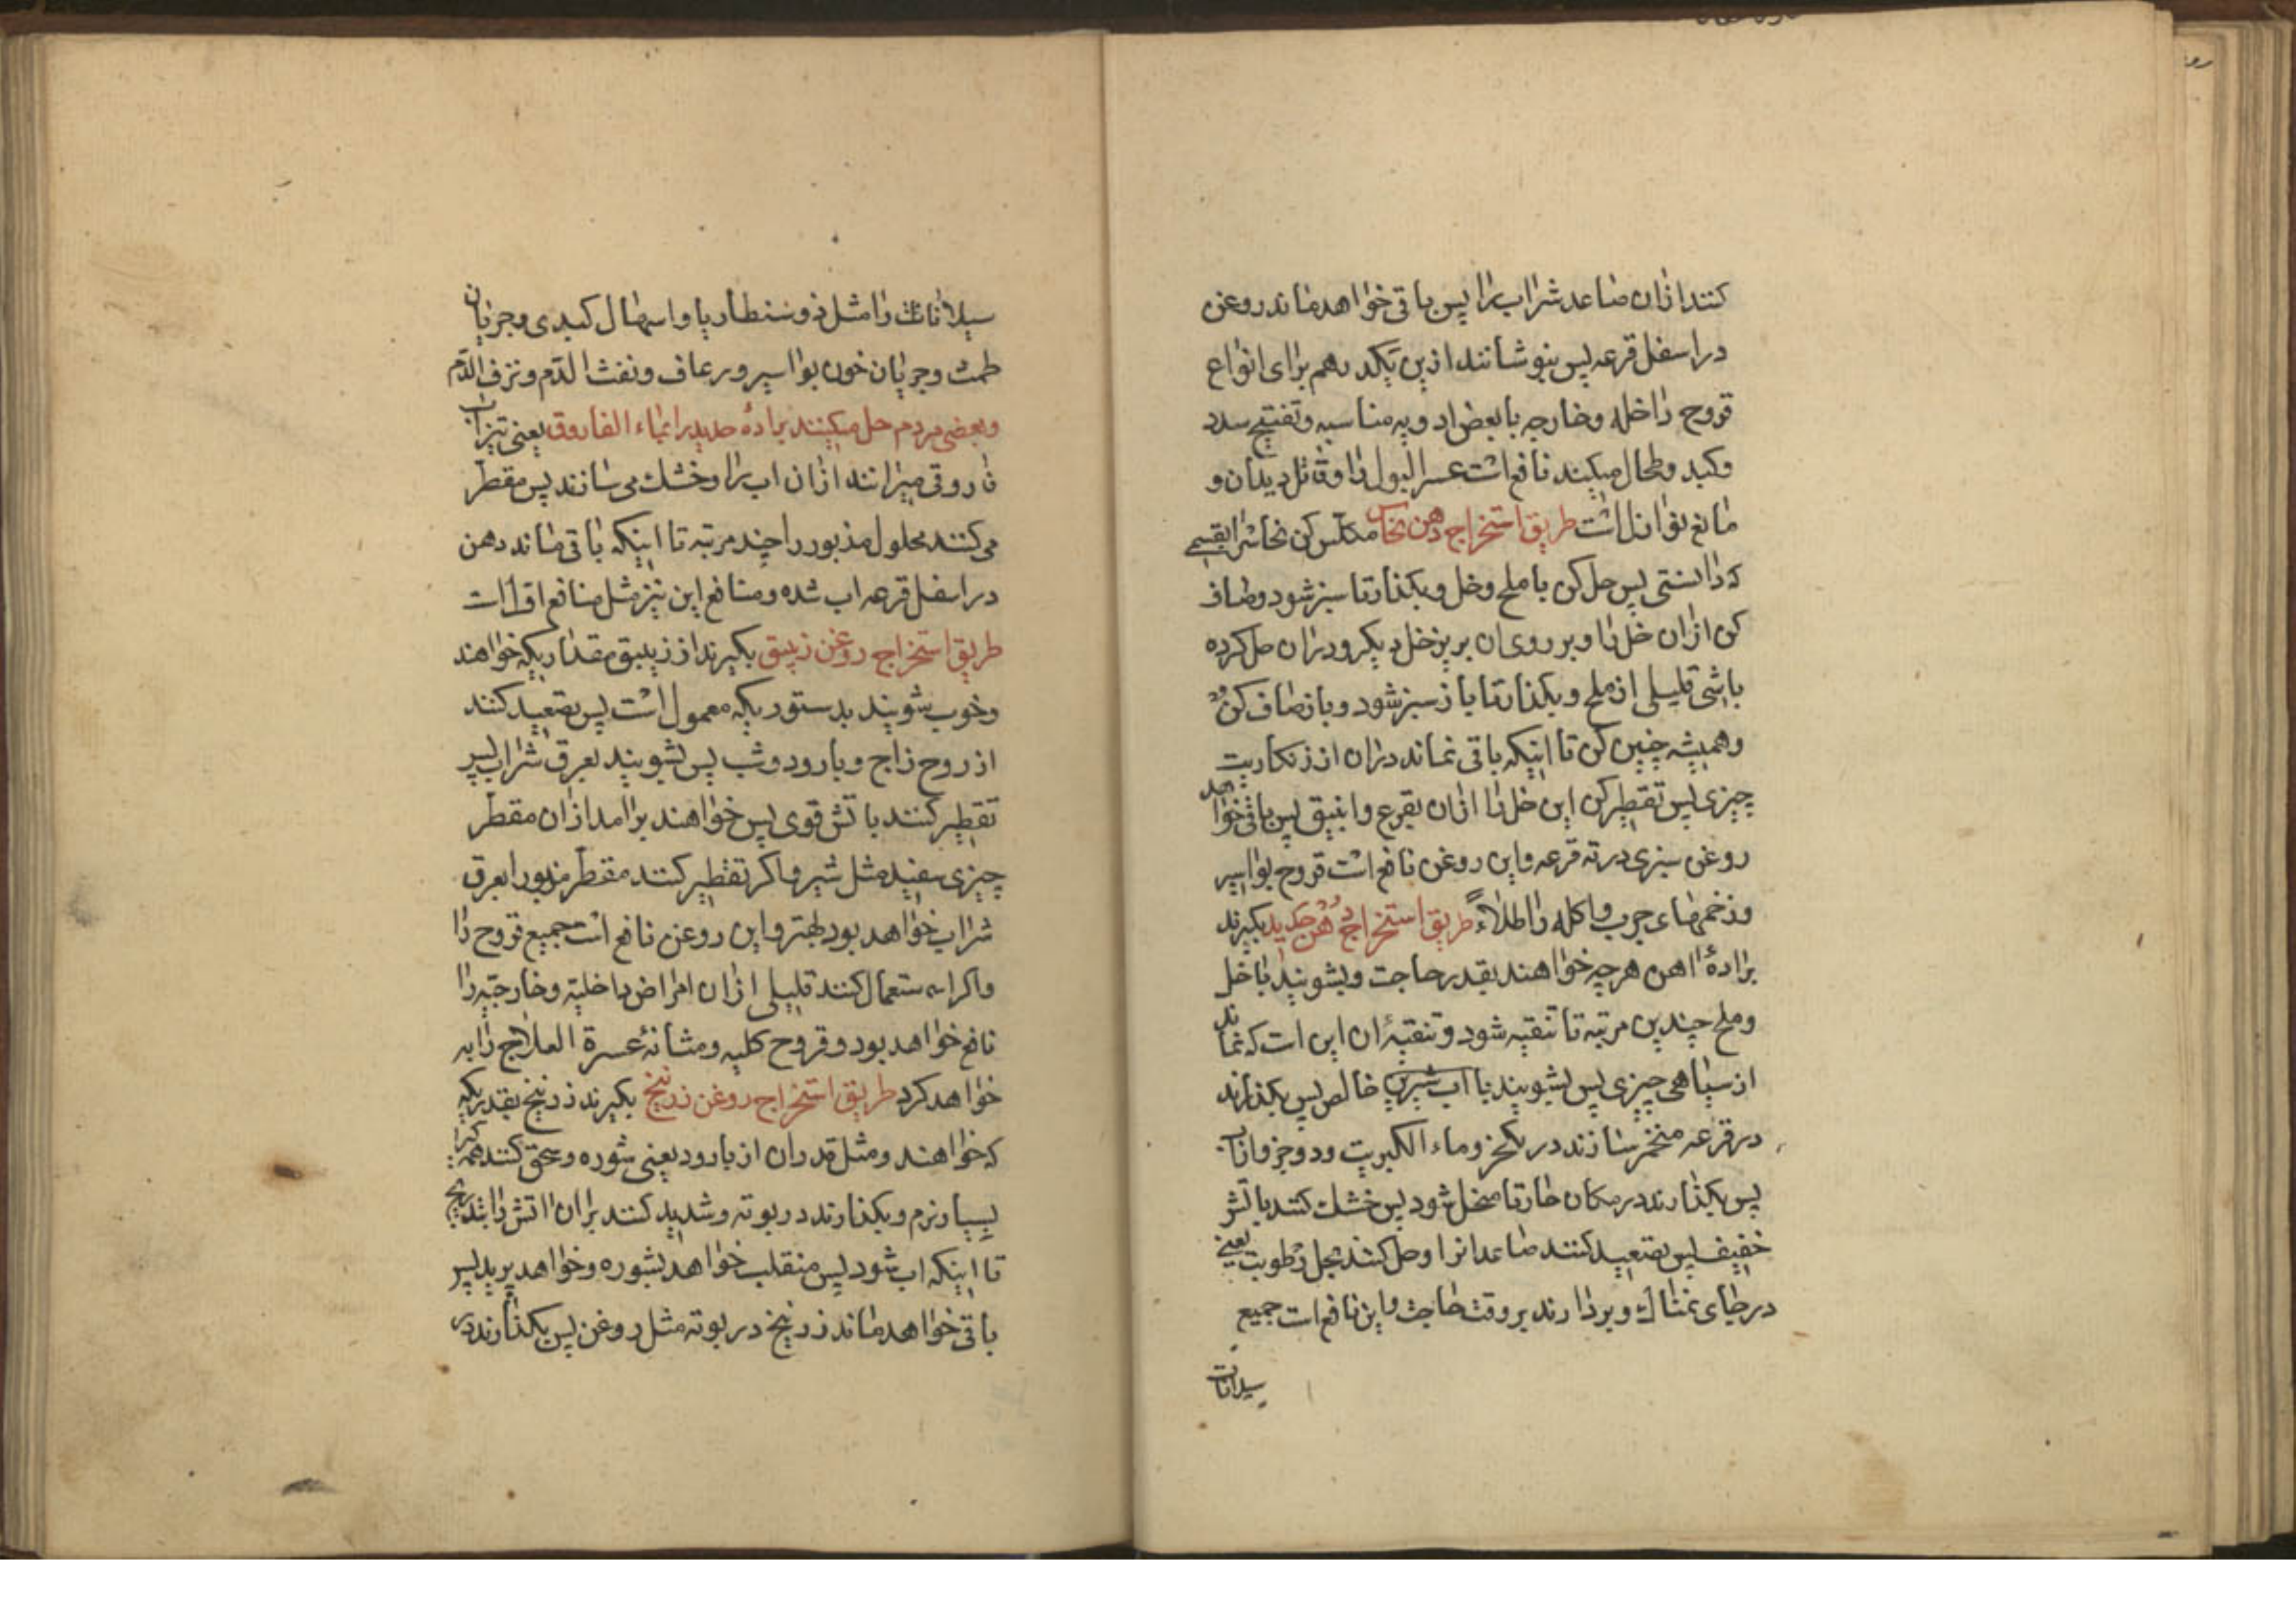 کنند ازان صاعد شراب را پس باقی خواهد ماند روغن
در اسفل قرعه پس بنوشانند ازین یکدرهم برای انواع
قروح داخله و خارجه با بعض ادویه مناسبه و تفتیح سدد
وکبد وطحال میکند نافع است عسر البول را و قاتل دیدان و
مانع نوازل است طریق استخراج دهن نحاس مکلس کن نحاس را بقسمی
که دانستی پس حل کن با ملح وخل وبکذار تا سبز شود وصاف
کن ازان خل را وبر روی ان بریز خل دیکر ودران حل کرده
باشی قلیلی از ملح وبکذار تا باز سبز شود وباز صاف کن
وهمیشه چنین کن تا اینکه باقی نماند دران از زنکاریت
چیزی پس تقطیر کن این خل را ازان بقرع وانبیق پس باقی خواهد
روغن سبزی در ته قرعه واین روغن نافع است قروح بواسیر
وزخمهای جرب واکله را طلاءً طریق استخراج دهن حدید بکیرند
برادهٔ اهن هر چه خواهند بقدر حاجت وبشویند با خل
وملح چندین مرتبه تا تنقیه شود وتنقیهٔ ان این است که نماند
از سیاهی چیزی پس بشویند با اب شیرین خالص پس بکذارند
در قرعه متخمر سازند در یکجز وماء الکبریت ودوجز
پس بکذارند در مکان حار تا منحل شود پس خشک کنند باتش
خفیف پس تصعید کنند صاعد انرا وحل کنند بحل رطوبت یعنی
در جای نمناک وبردارند بروقت حاجت واین نافع است جمیع
سیلانات
سیلانات را مثل ذوسنطاریا واسهال کبدی وجریان
طمث وجریان خون بواسیر ورعاف ونفث الدّم ونزف الدّم
وبعضی مردم حل میکنند برادهٔ حدید را بماء الفاروق یعنی تیزاب
فاروقی میرانند ازان اب را وخشک می سانند پس مقطر
می کنند محلول مذبور را چند مرتبه تا اینکه باقی ماند دهن
در اسفل قرعه اب شده ومنافع این نیز مثل منافع اول است
طریق استخراج روغن زیبق بکیرند از زیبق مقداریکه خواهند
وخوب شویند بدستوریکه معمول است پس تصعید کنند
از روح زاج وبارود وشب پس بشویند بعرق شراب پس
تقطیر کنند باتش قوی پس خواهند برامد ازان مقطر
چیزی سفید مثل شیر واکر تقطیر کنند مقطر مزبور را بعرق
شراب خواهد بود بهتر واین روغن نافع است جمیع قروح را
واکر استعمال کنند قلیلی ازان امراض داخلیّه وخارجیّه را
نافع خواهد بود وقروح کلیه ومثانهٔ عسرة العلاج را به
خواهد کرد طریق استخراج روغن زرنیخ بکیرند زرنیخ بقدریکه
که خواهند ومثل قدر ان از بارود یعنی شوره وسحق کنند همه را
بسیار نرم وبکذارند در بوته وشدید کنند بران اتش را بتدریج
تا اینکه اب شود پس منقلب خواهد بشوره وخواهد پرید پس
باقی خواهد ماند زرنیخ در بوته مثل روغن پس بکذارند در